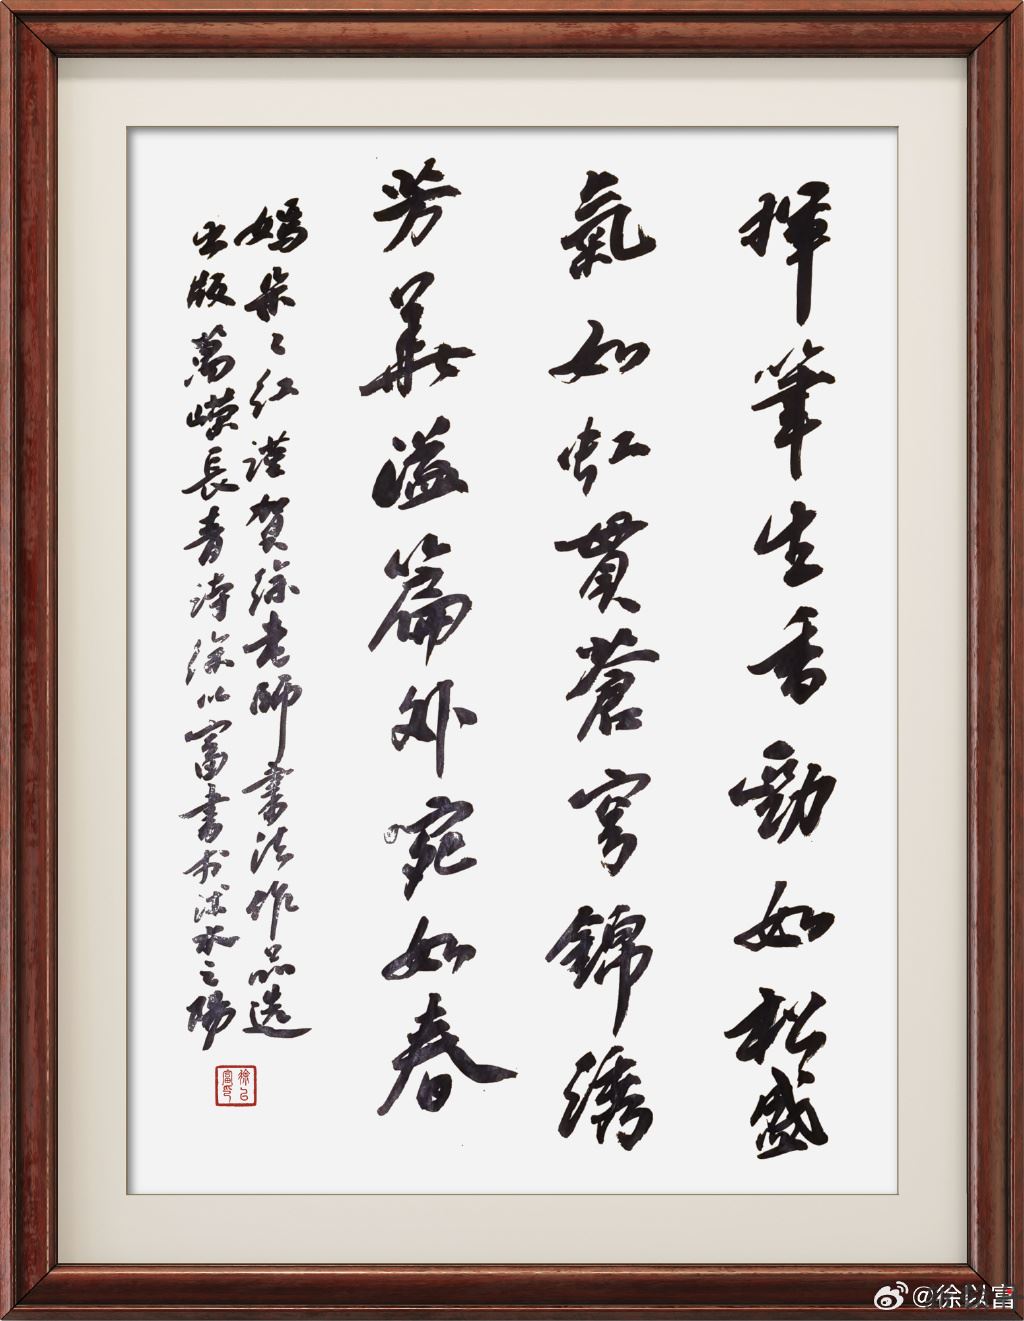 揮筆生香勁如松盛
氣如虹貫蒼穹錦綉
芳華溢篇外宛如春
嫣朵〻红謹賀徐老師書法作品選
出版萬嶸長青詩徐以富書於沭水之陽
徐以富印
@徐以富